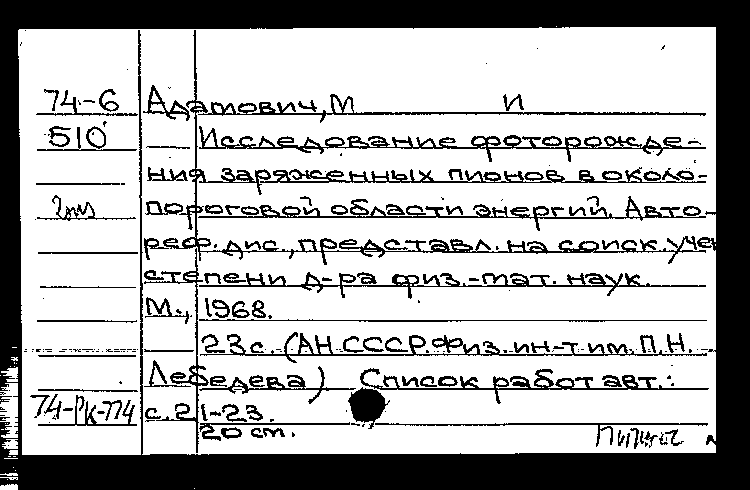 74-6 Адамович, М И
510 Исследование фоторожде-
ния заряженных пионов в около-
2 экз пороговой области энергий. Авто-
реф. дис., представл. на соиск. учен
степени д-ра физ.-мат. наук.
М., 1968.
23 с. (АН СССР. Физ. ин-т им. П.Н.
Лебедева) Список работ авт.:
74-РК-774 с. 21-23.
20 см.